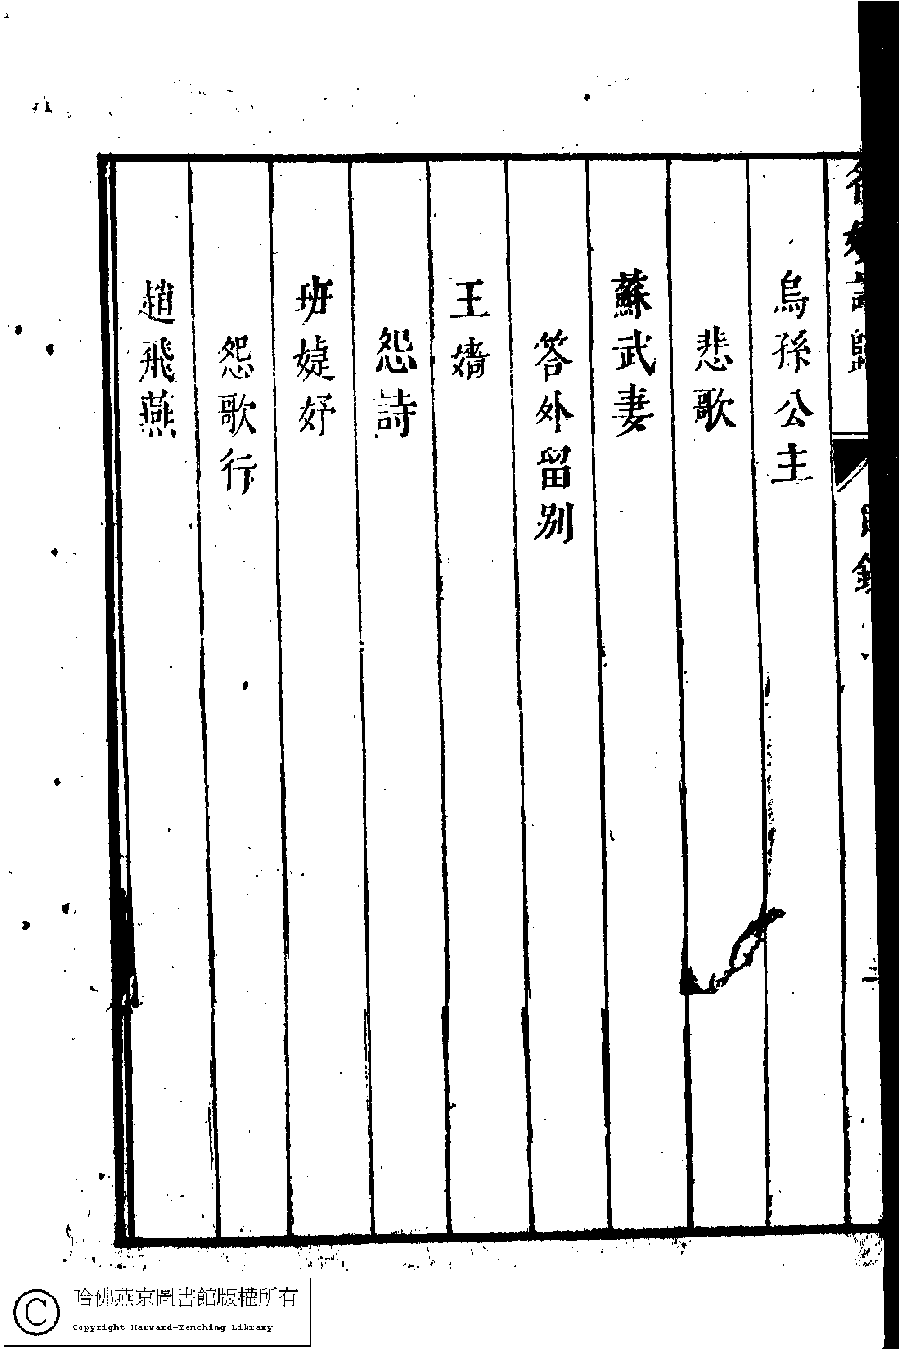 名媛詩歸
目錄
烏孫公主
悲歌
蘇武妻
答外留別
王嬙
怨詩
班婕妤
怨歌行
趙飛燕
哈佛燕京圖書館版權所有
Copyright Harvard-Yenching Library